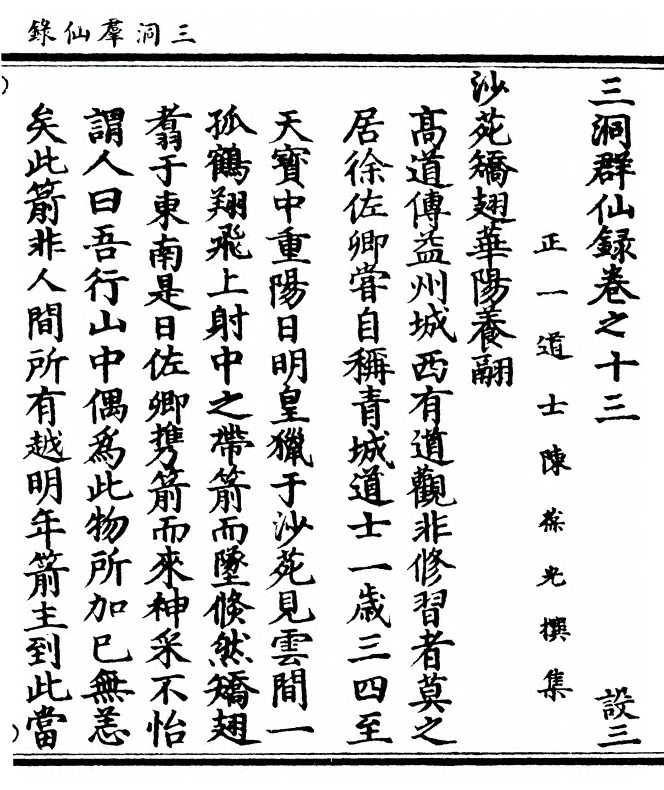 三洞羣仙錄
三洞群仙録卷之十三
設三
正一道士陳葆光撰集
沙苑矯翅華陽養翮
髙道傳益州城西有道觀非修習者莫之
居徐佐卿甞自稱青城道士一歲三四至
天寶中重陽日明皇獵于沙苑見雲間一
孤鶴翔飛上射中之帶箭而墜倐然矯翅
翥于東南是日佐卿携箭而來神采不怡
謂人曰吾行山中偶為此物所加已無恙
矣此箭非人間所有越明年箭主到此當